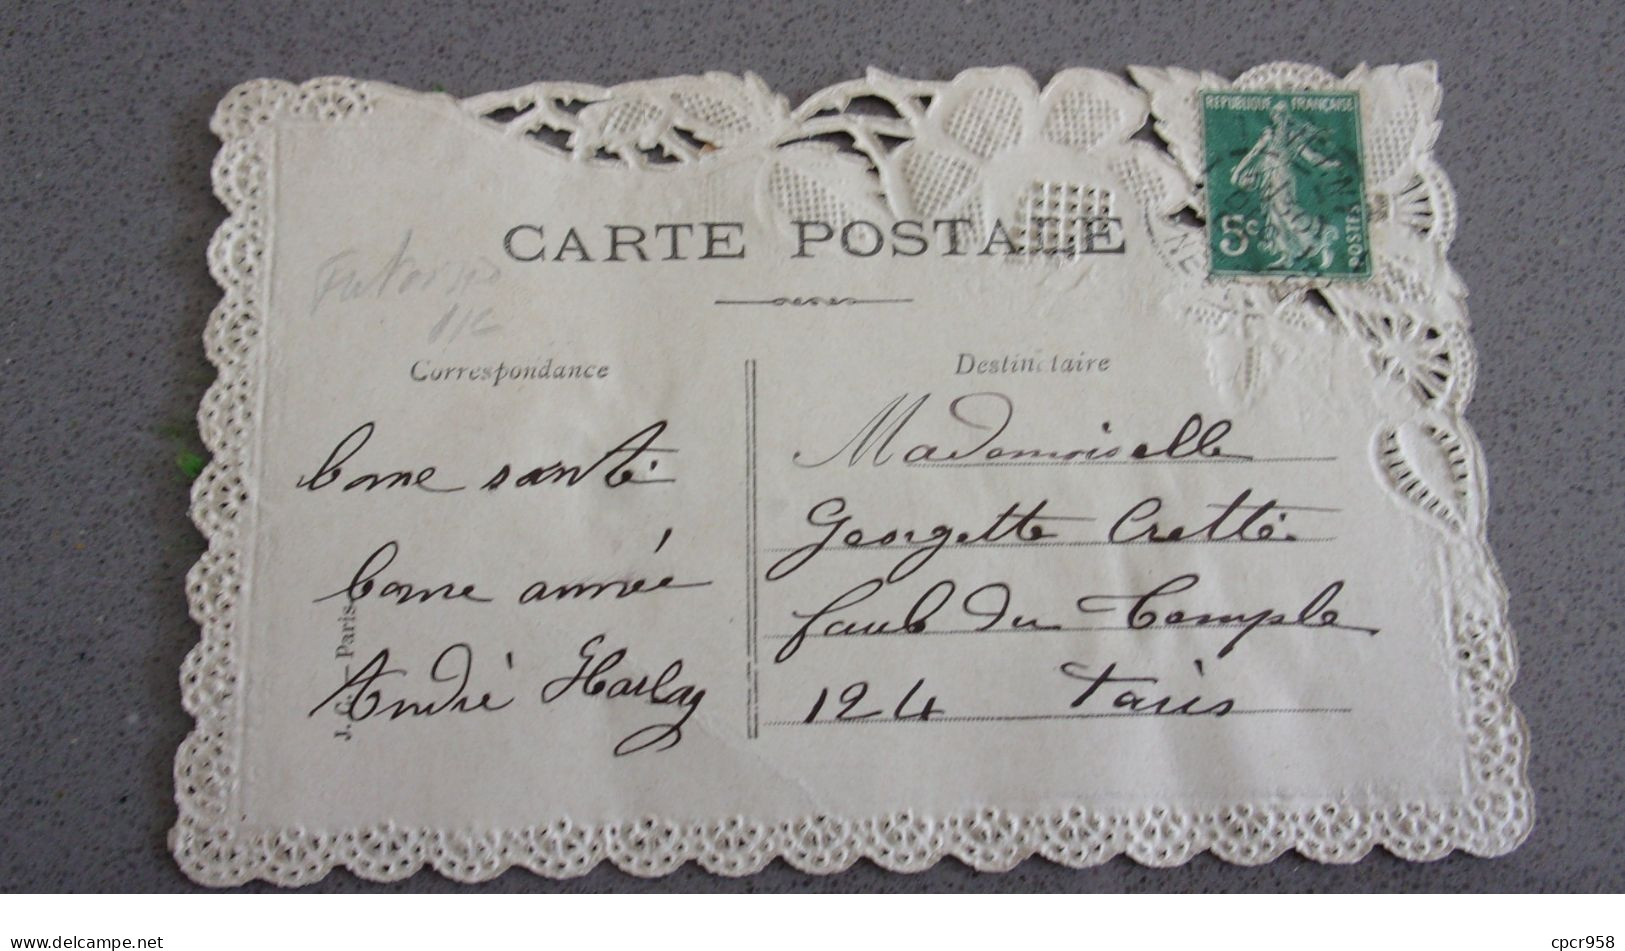 REPUBLIQUE FRANÇAISE
5c
POSTES
CARTE POSTALE
Correspondance
Destinataire
bonne santé
bonne année
André Harlay
J. C. – Paris
Mademoiselle
Georgette Cretté
faub du Temple
124 Paris
delcampe.net
cpcr958